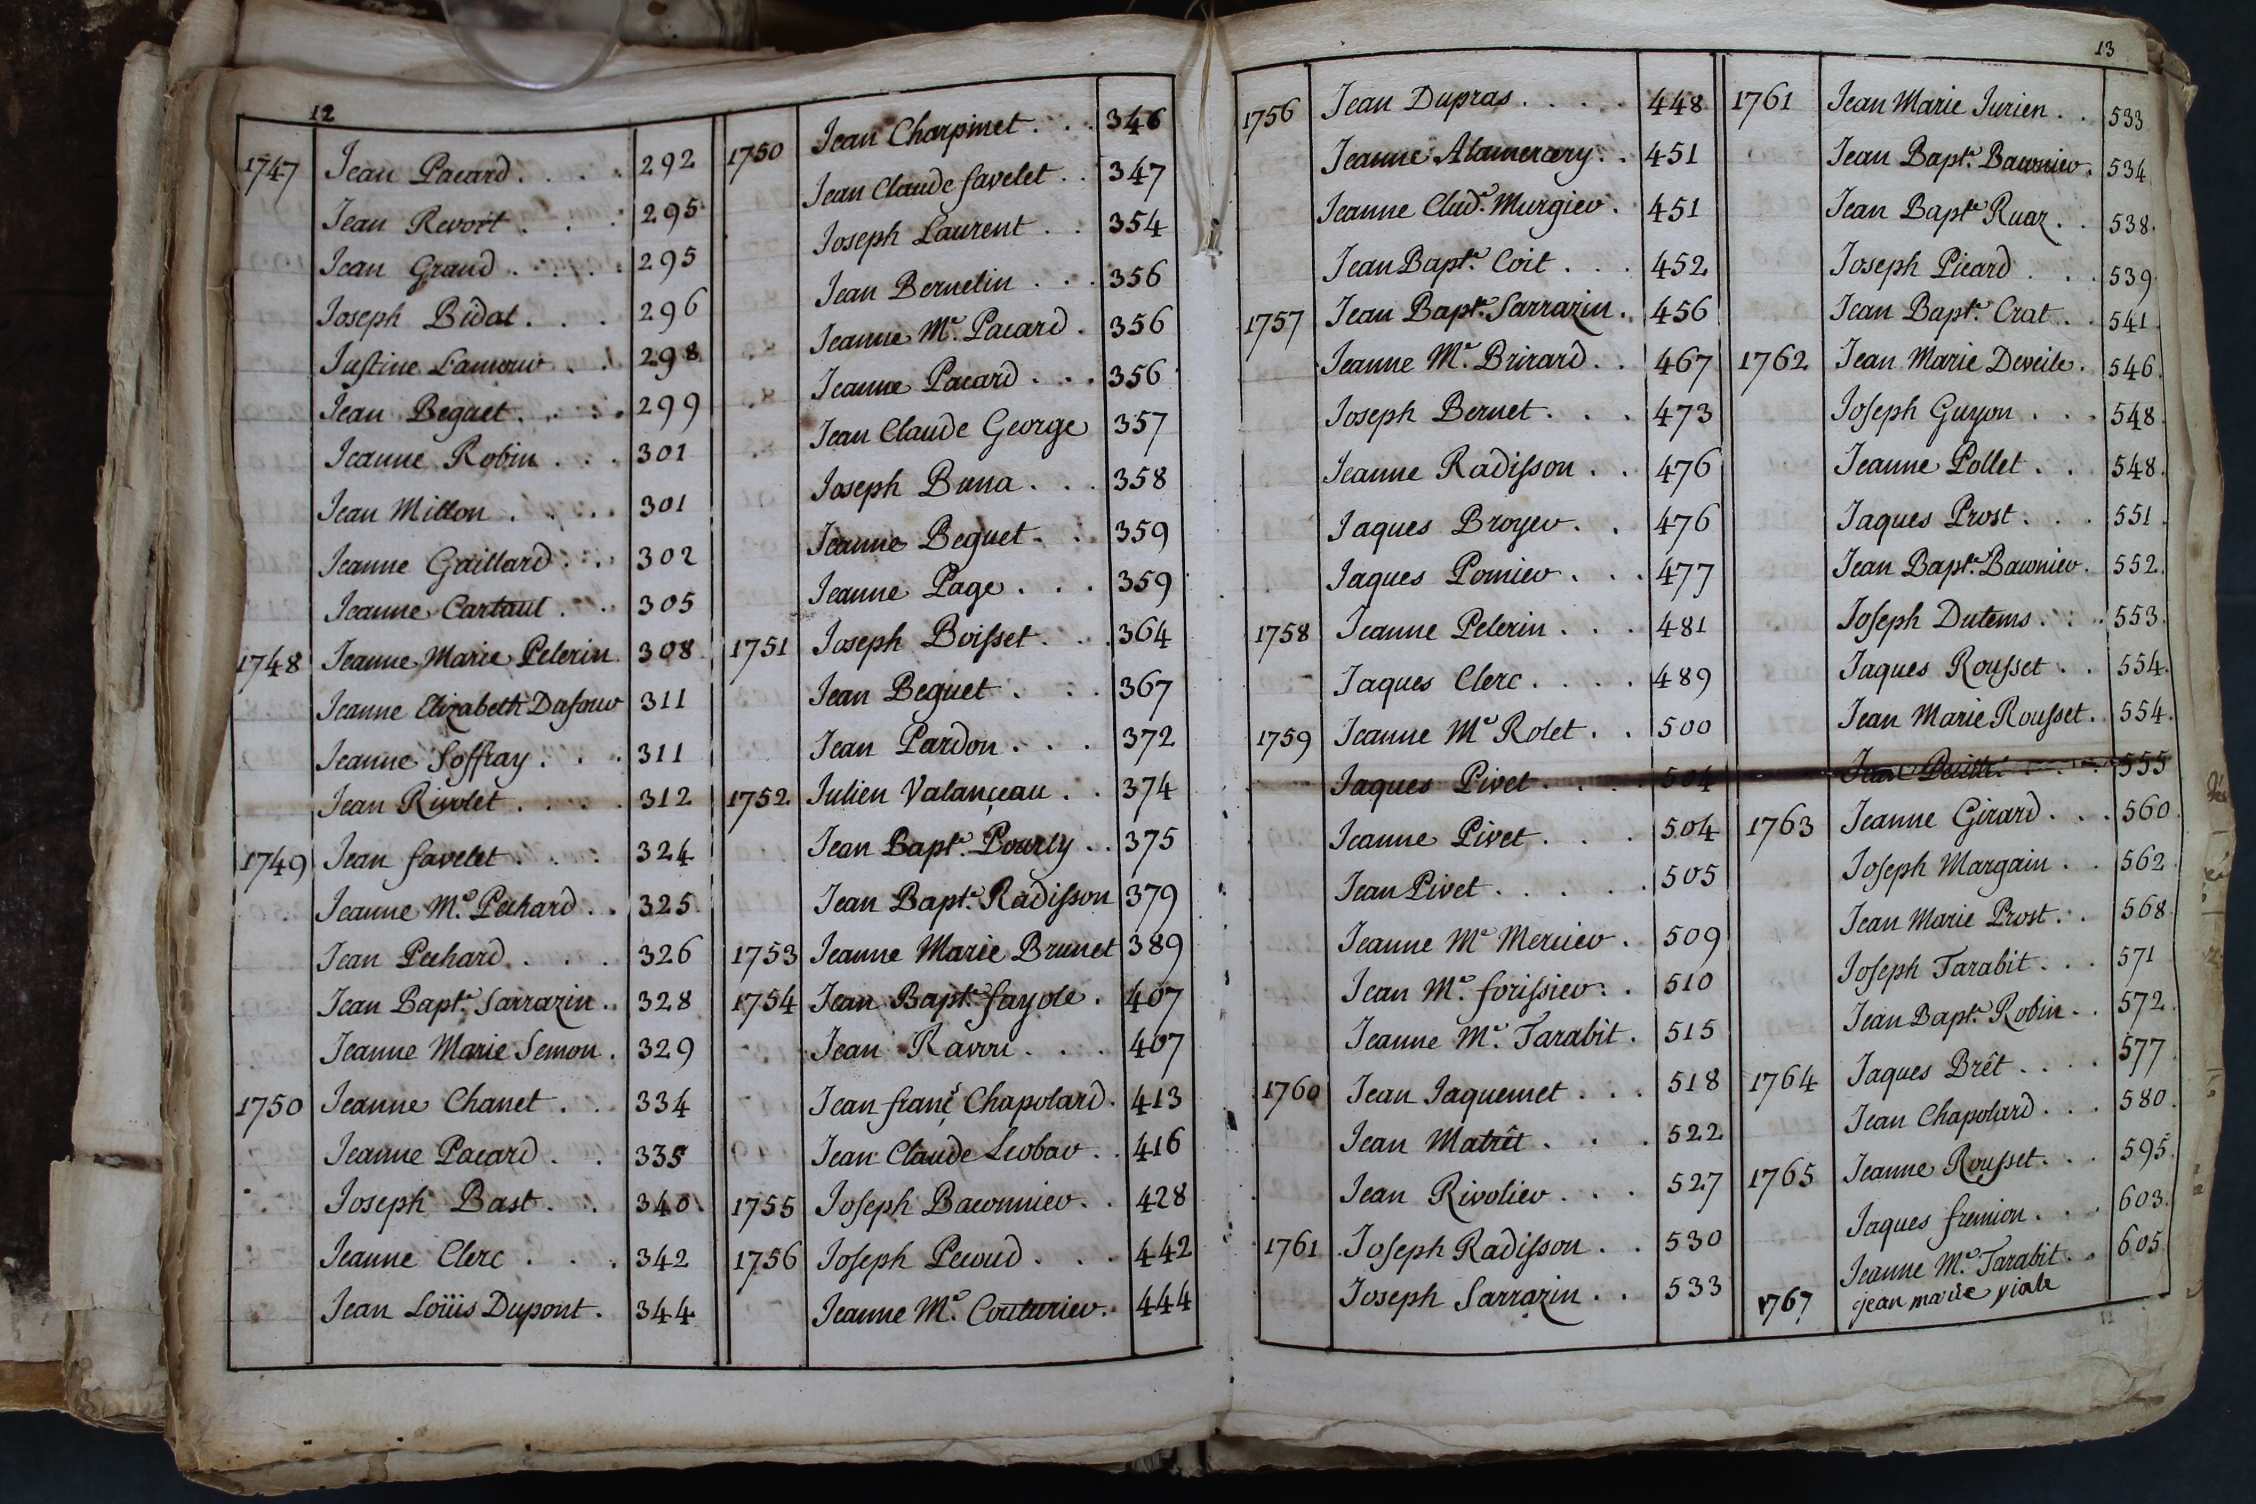 12
1747 Jean Pacard. . . . 292
Jean Revort . . . 295
Jean Grand . . . . 295
Joseph Bidat. . . 296
Justine Lamour . . 298
Jean Beguet. . . . 299
Jeanne Robin . . . 301
Jean Millon . . . . 301
Jeanne Gaillard . . . 302
Jeanne Cartaut . . . 305
1748 Jeanne Marie Pelerin 308
Jeanne Elizabeth Dufour 311
Jeanne Soffray . . . 311
Jean Rivolet . . . . 312
1749 Jean favelet . . . . 324
Jeanne Me. Pechard . . 325
Jean Pechard . . . 326
Jean Bapte. Sarrazin . . 328
Jeanne Marie Semon . 329
1750 Jeanne Chanet . . . 334
Jeanne Pacard . . 335
Joseph Bast . . . 340
Jeanne Clerc . . . 342
Jean Loüis Dupont . 344
1750 Jean Charpinet . . . 346
Jean Claude favelet . . 347
Joseph Laurent . . 354
Jean Bernelin . . . 356
Jeanne Me. Pacard . 356
Jeanne Pacard . . . 356
Jean Claude George 357
Joseph Buna . . . 358
Jeanne Beguet . . . 359
Jeanne Page . . . 359
1751 Joseph Boisset . . . 364
Jean Beguet . . . 367
Jean Pardon . . . 372
1752 Julien Valançeau . . 374
Jean Bapte. Pourly . . 375
Jean Bapte. Radisson 379
1753 Jeanne Marie Brunet 389
1754 Jean Bapte. fayole . 407
Jean Ravori . . . . 407
Jean franç. Chapolard . 413
Jean Claude Leobar . . 416
1755 Joseph Baconnier . . 428
1756 Joseph Pecoud . . . 442
Jeanne Me. Couturier . 444
13
1756 Jean Dupras . . . . 448
Jeanne Alamercery . . 451
Jeanne Clude. Murgier . 451
Jean Bapte. Coit . . . 452
1757 Jean Bapte. Sarrazin . 456
Jeanne Me. Brirard . . 467
Joseph Bernet . . . 473
Jeanne Radisson . . 476
Jaques Broyer . . 476
Jaques Pomier . . . 477
1758 Jeanne Pelerin . . . 481
Jaques Clerc . . . . 489
1759 Jeanne Me Rolet . . 500
Jaques Pivet . . . . 504
Jeanne Pivet . . . . 504
Jean Pivet . . . . . 505
Jeanne Me Mercier . 509
Jean Me. forissier . . 510
Jeanne Me. Tarabit . 515
1760 Jean Jaquemet . . . 518
Jean Matrêt . . . . 522
Jean Rivolier . . . 527
1761 Joseph Radisson . . 530
Joseph Sarrazin . . 533
1761 Jean Marie Jurien . . 533
Jean Bapte. Baconnier . 534
Jean Bapte Ruaz . . 538
Joseph Picard . . . 539
Jean Bapte. Crat . . 541
1762 Jean Marie Deveile . 546
Joseph Guyon . . . 548
Jeanne Pollet . . 548
Jaques Prost . . . 551
Jean Bapte. Baconier . 552
Joseph Dutems . . . 553
Jaques Rousset . . 554
Jean Marie Rousset . . 554
Jean 555
1763 Jeanne Girard . . . 560
Joseph Margain . . 562
Jean Marie Prost . . 568
Joseph Tarabit . . . 571
Jean Bapte. Robin . . 572
1764 Jaques Brêt . . . . 577
Jean Chapolard . . . 580
1765 Jeanne Rousset . . . 595
Jaques fremion . . . 603
Jeanne Me. Tarabit . . 605
1767 jean marie viale